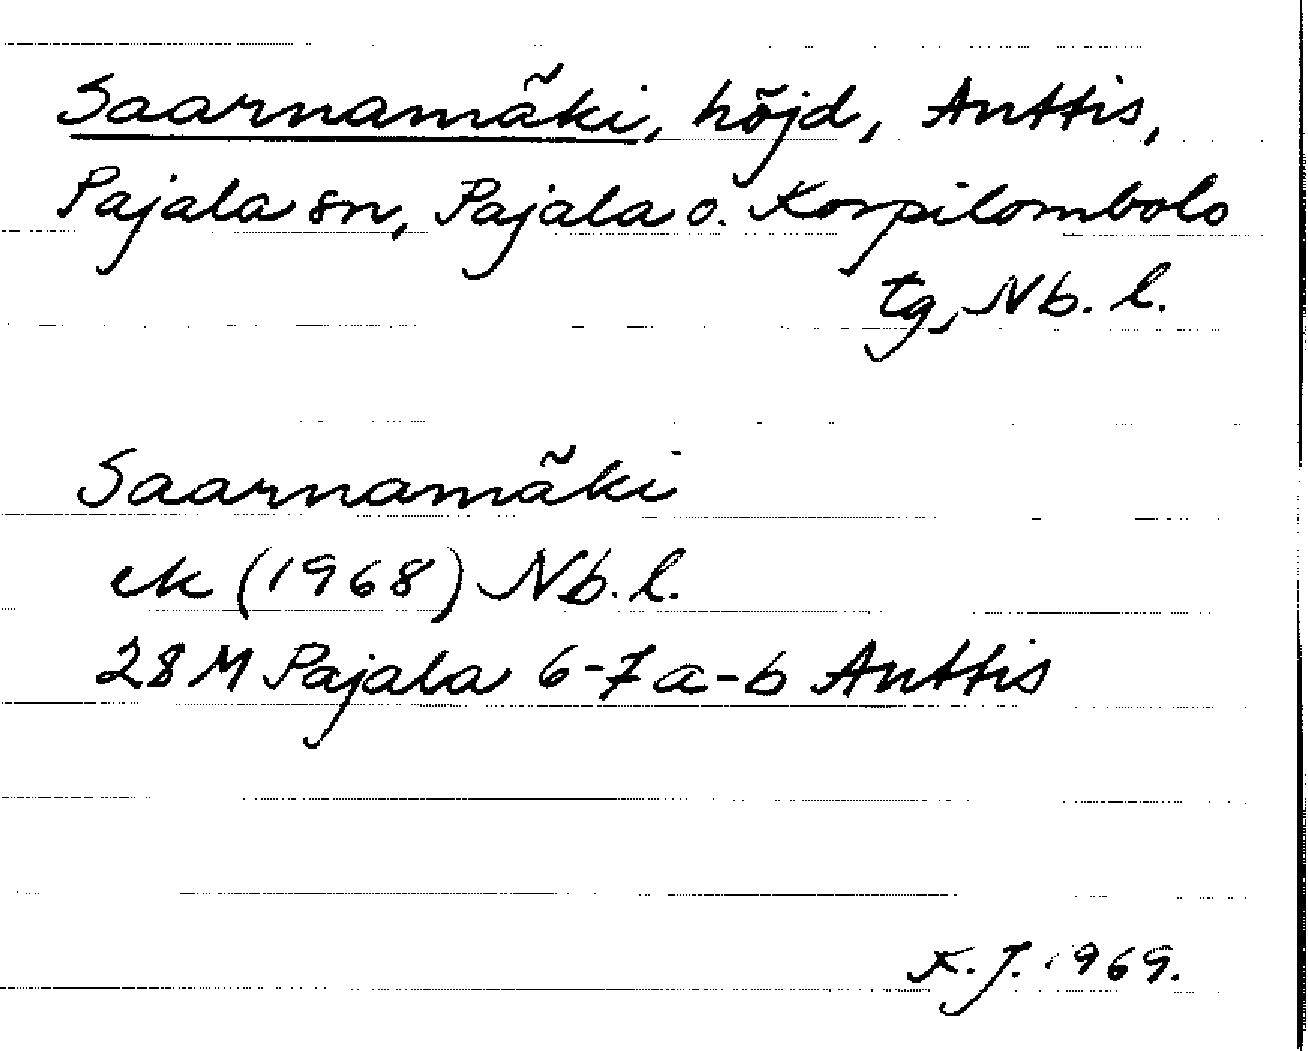 Saarnamäki, höjd, Anttis,
Pajala sn, Pajala o. Korpilombolo
tg, Nb. l.
Saarnamäki
ek (1968) Nb. l.
28 M Pajala 6-7 a-b Anttis
K. J. 1969.